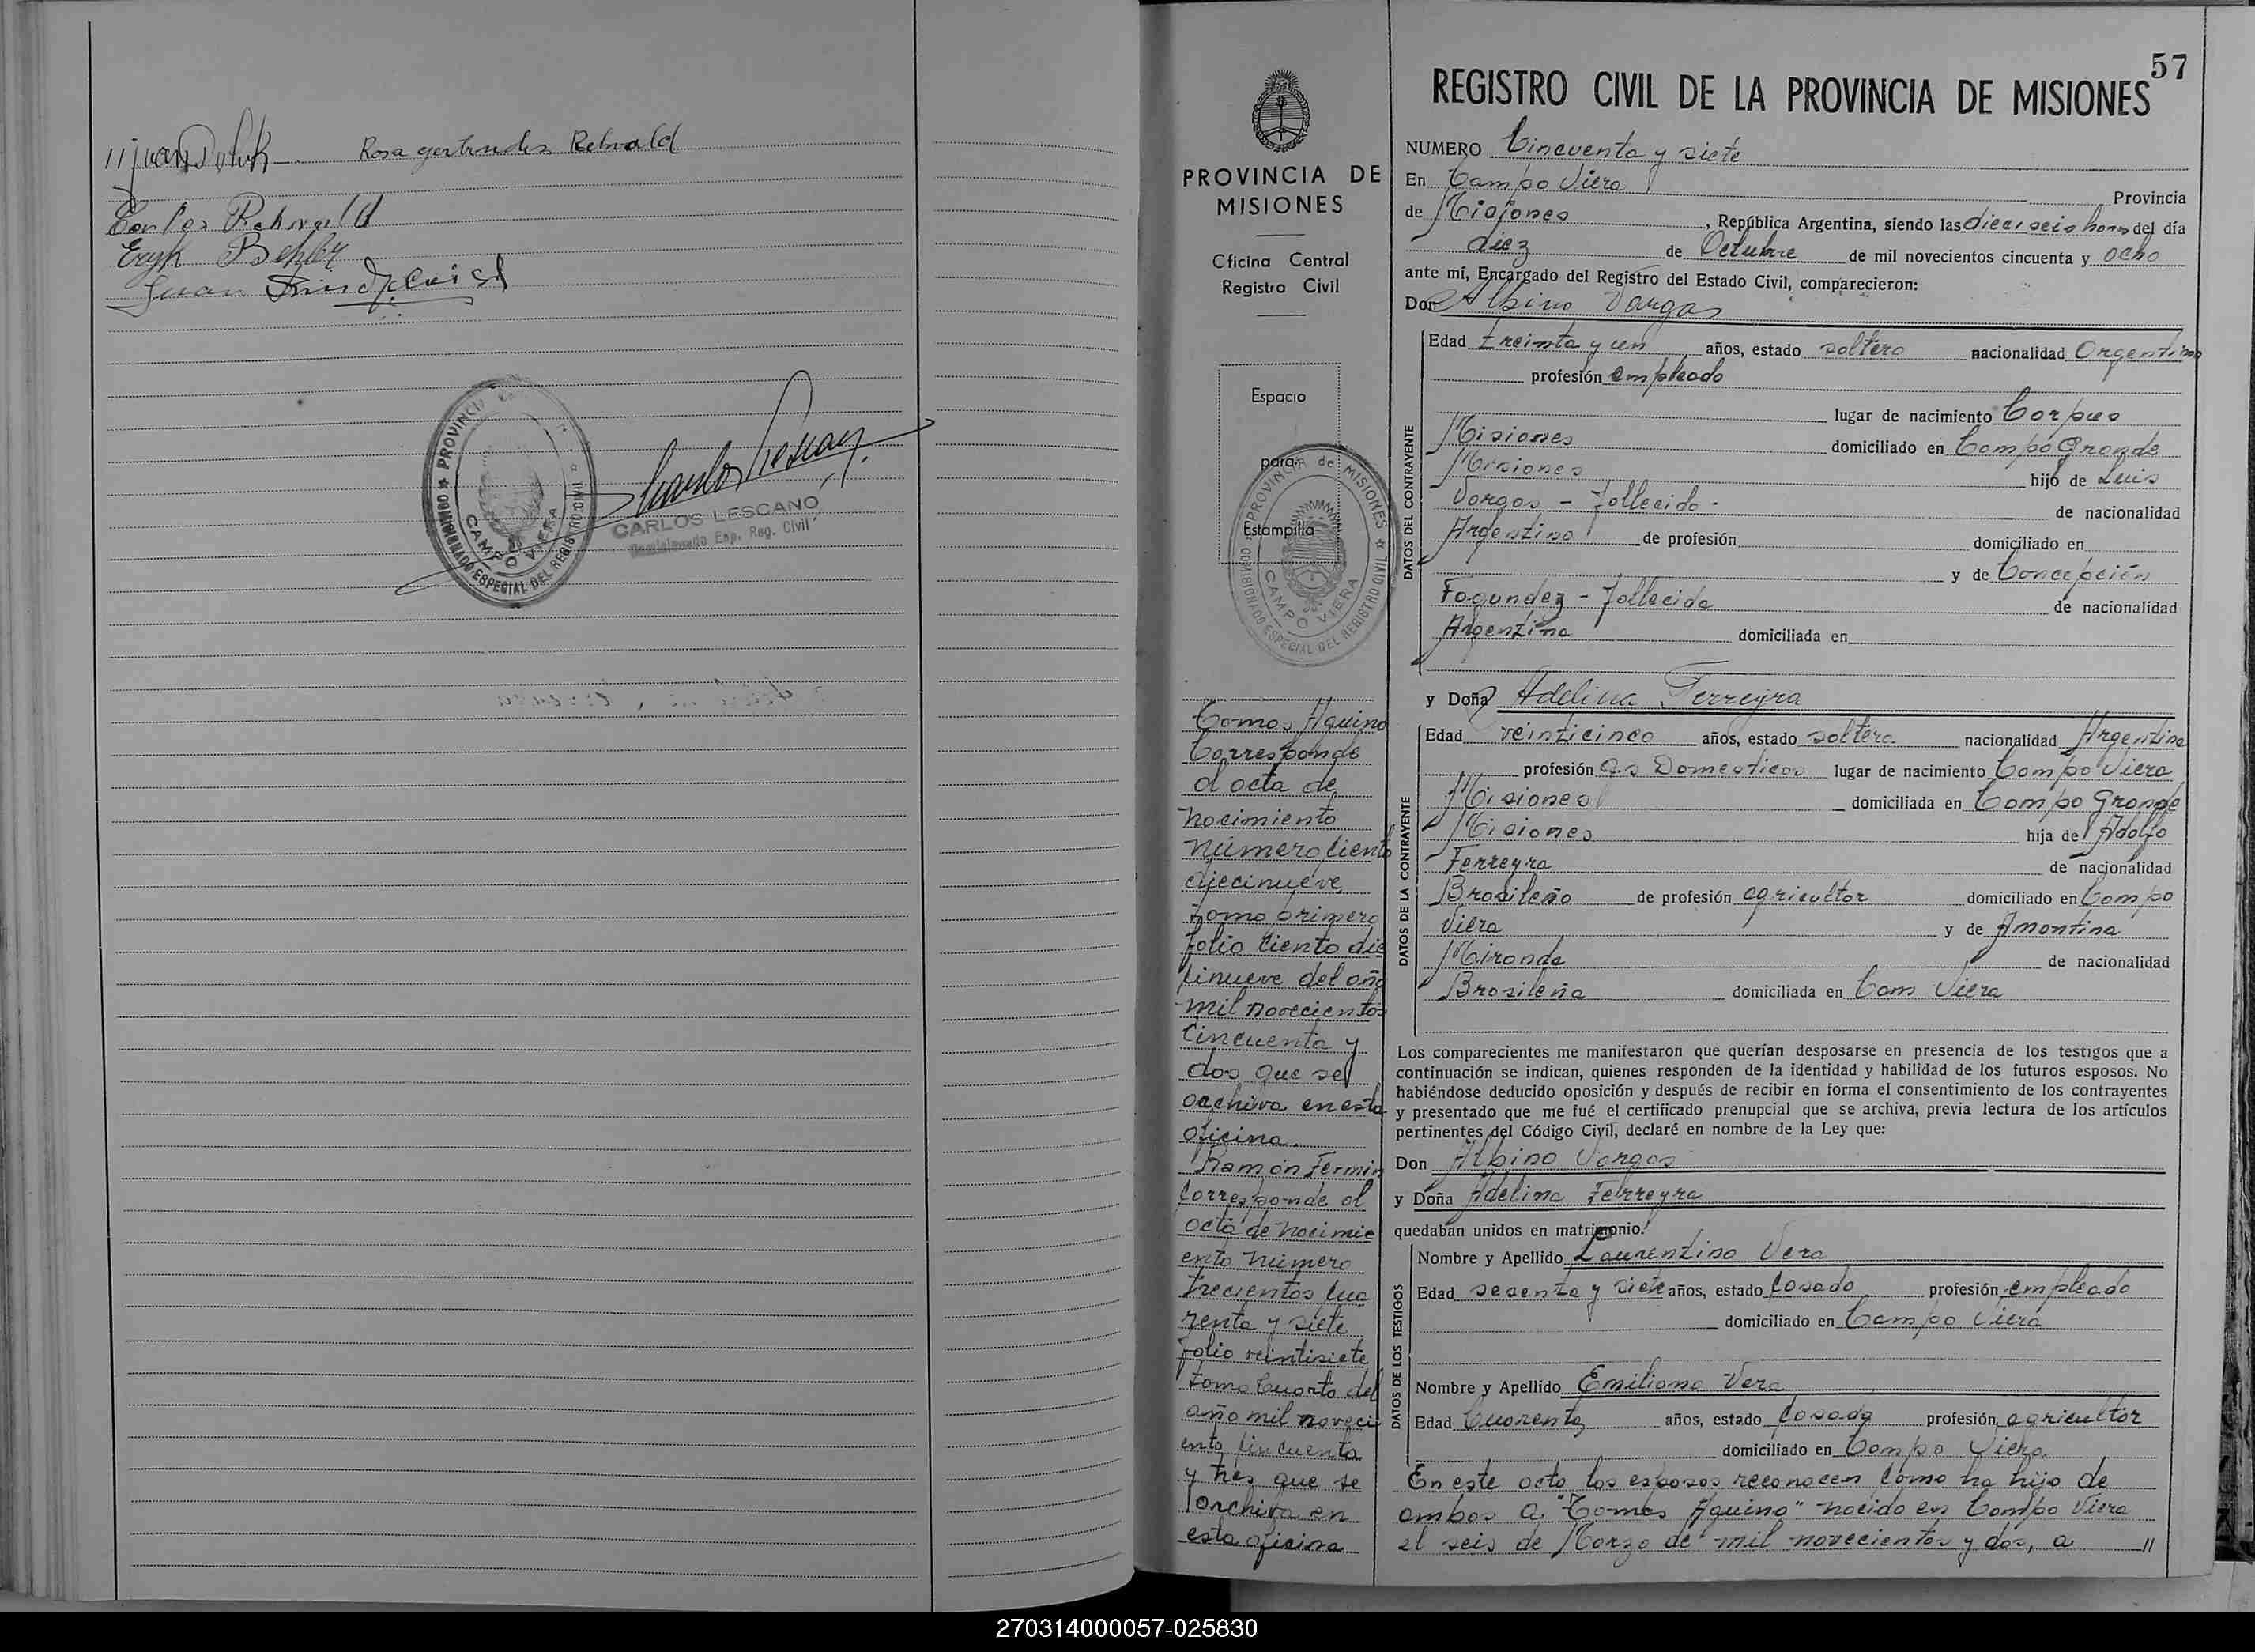 Rosa gertrudes Rehwald
Carlos Rehwald
Eryk Behler
Juan
PROVINCIA
CAMPO VIERA
COMISIONADO ESPECIAL DEL REGISTRO CIVIL
CARLOS LESCANO
Comisionado Esp. Reg. Civil
57
REGISTRO CIVIL DE LA PROVINCIA DE MISIONES
PROVINCIA DE
MISIONES
Oficina Central
Registro Civil
Espacio
para
Estampilla
PROVINCIA de MISIONES
CAMPO VIERA
COMISIONADO ESPECIAL DEL REGISTRO CIVIL
Tomas Aquino
Corresponde
al acta de
nacimiento
número ciento
diecinueve
tomo primero
folio ciento die
cinueve del año
mil novecientos
Cincuenta y
dos que se
archiva en esta
oficina.
Ramón Fermin
Corresponde al
acta de nacimie
ento número
trecientos cua
renta y siete
folio veintisiete
tomo Cuarto del
año mil noveci
ento cincuenta
y tres que se
archiva en
esta oficina
NUMERO Cincuenta y siete
En Campo Viera Provincia
de Misiones, República Argentina, siendo las dieciseis horas del día
diez de Octubre de mil novecientos cincuenta y ocho
ante mí, Encargado del Registro del Estado Civil, comparecieron:
Don Albino Vargas
DATOS DEL CONTRAYENTE
Edad treinta y un años, estado soltero nacionalidad Argentino
profesión empleado
lugar de nacimiento Corpus
Misiones domiciliado en Campo Grande
Misiones hijo de Luis
Vargas - fallecido - de nacionalidad
Argentino de profesión domiciliado en
y de Concepción
Fagundez - fallecida de nacionalidad
Argentina domiciliada en
y Doña Adelina Ferreyra
DATOS DE LA CONTRAYENTE
Edad veinticinco años, estado soltera nacionalidad Argentina
profesión Q.s Domesticos lugar de nacimiento Campo Viera
Misiones domiciliada en Campo Grande
Misiones hija de Adolfo
Ferreyra de nacionalidad
Brasileño de profesión agricultor domiciliado en Campo
Viera y de Amantina
Miranda de nacionalidad
Brasileña domiciliada en Cam Viera
Los comparecientes me manifestaron que querían desposarse en presencia de los testigos que a
continuación se indican, quienes responden de la identidad y habilidad de los futuros esposos. No
habiéndose deducido oposición y después de recibir en forma el consentimiento de los contrayentes
y presentado que me fué el certificado prenupcial que se archiva, previa lectura de los artículos
pertinentes del Código Civil, declaré en nombre de la Ley que:
Don Albino Vargas
y Doña Adelina Ferreyra
quedaban unidos en matrimonio.
DATOS DE LOS TESTIGOS
Nombre y Apellido Laurentino Vera
Edad sesenta y siete años, estado Casado profesión empleado
domiciliado en Campo Viera
Nombre y Apellido Emiliano Vera
Edad Cuarenta años, estado Casado profesión agricultor
domiciliado en Campo Viera
En este acto los esposos reconocen como ha hijo de
ambos a "Tomas Aquino" nacido en Campo Viera
el seis de Marzo de mil novecientos y dos, a //
270314000057-025830